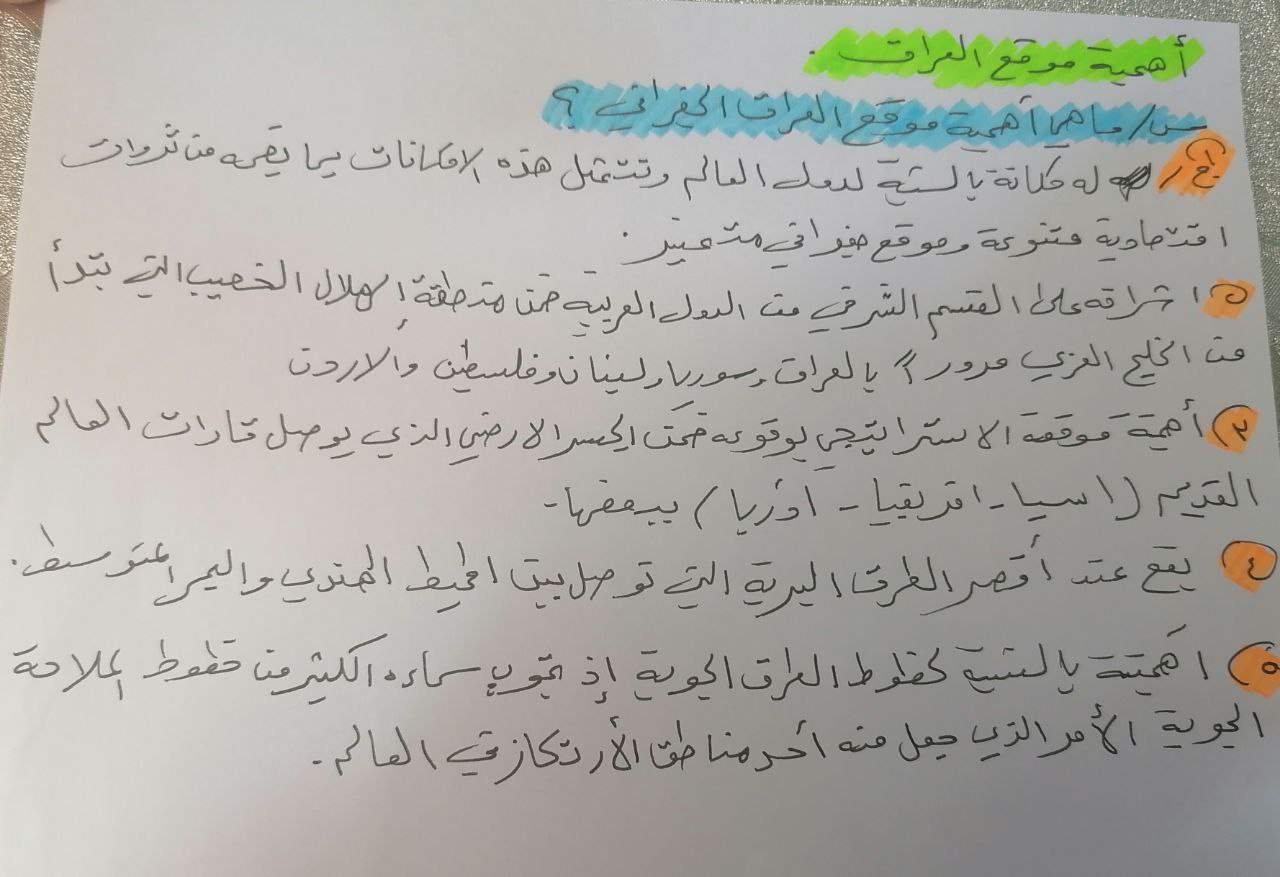 أهمية موقع العراق .
س/ ما هي أهمية موقع العراق الجغرافي ؟
ج/ له مكانة بالنسبة لدول العالم وتتمثل هذه الامكانات بما يضمه من ثروات
اقتصادية متنوعة وموقع جغرافي متميز .
٢) اشرافه على القسم الشرقي من الدول العربية ضمن منطقة الهلال الخصيب التي تبدأ
من الخليج العربي مرورا بالعراق وسوريا ولبنان وفلسطين والاردن
٣) أهمية موقعة الاستراتيجي بوقوعه ضمن الجسر الارضي الذي يوصل قارات العالم
القديم (اسيا - افريقيا - اوربا) ببعضها -
٤) يقع عند أقصر الطرق البرية التي توصل بين المحيط الهندي والبحر المتوسط .
٥) اهميتة بالنسبة لخطوط الطرق الجوية إذ تجوب سماءه الكثير من خطوط الملاحة
الجوية الأمر الذي جعل منه أحد مناطق الأرتكاز في العالم .